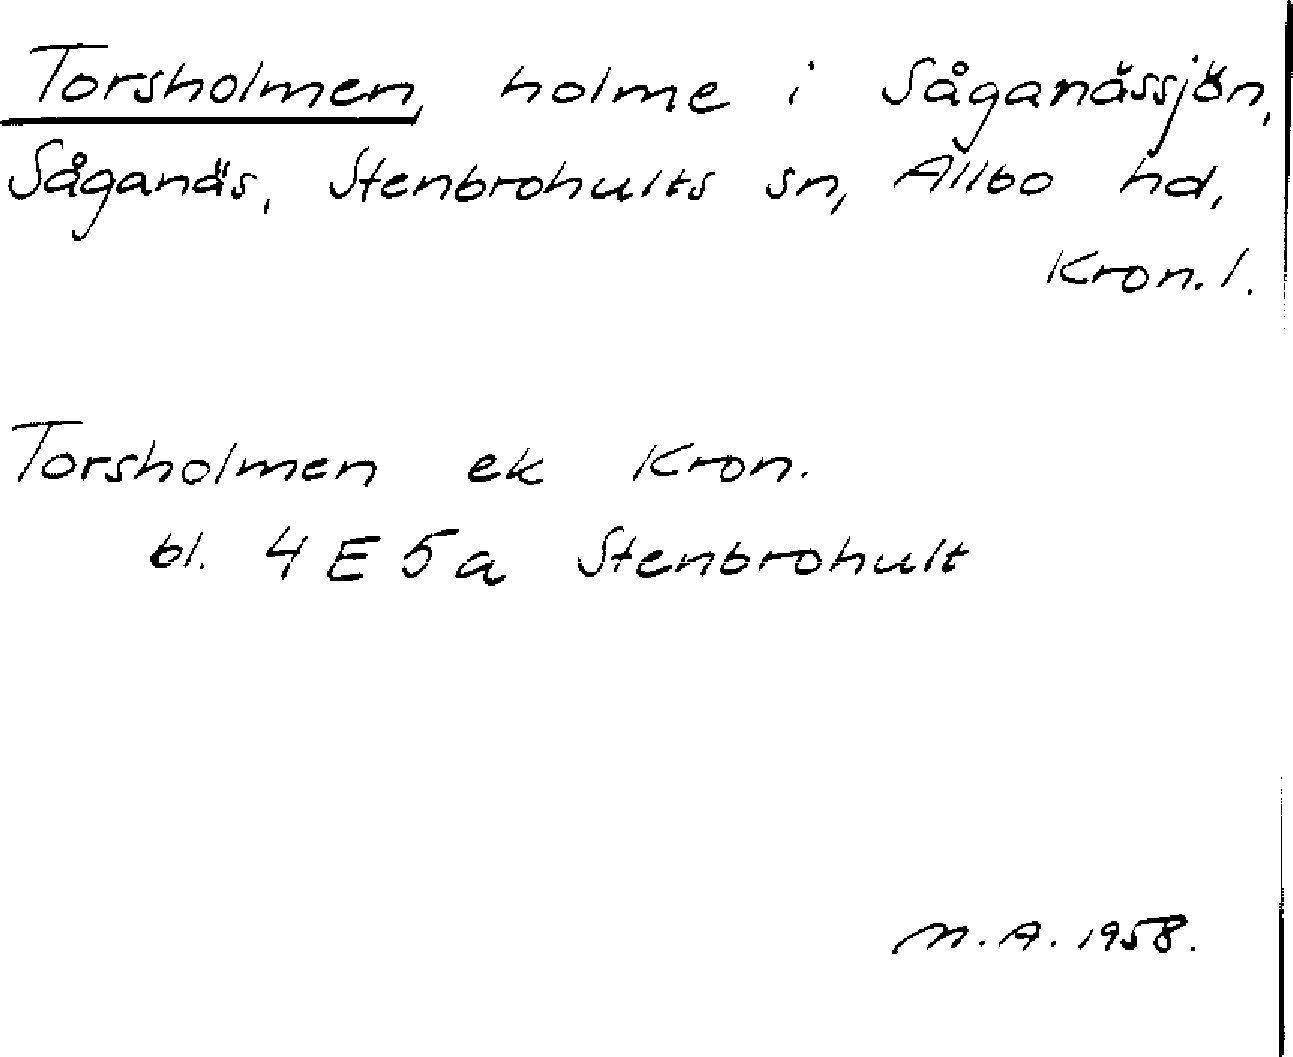 Torsholmen, holme i Såganässjön,
Såganäs, Stenbrohults sn, Allbo hd,
Kron. l.
Torsholmen ek Kron.
bl. 4 E 5 a Stenbrohult
M. A. 1958.